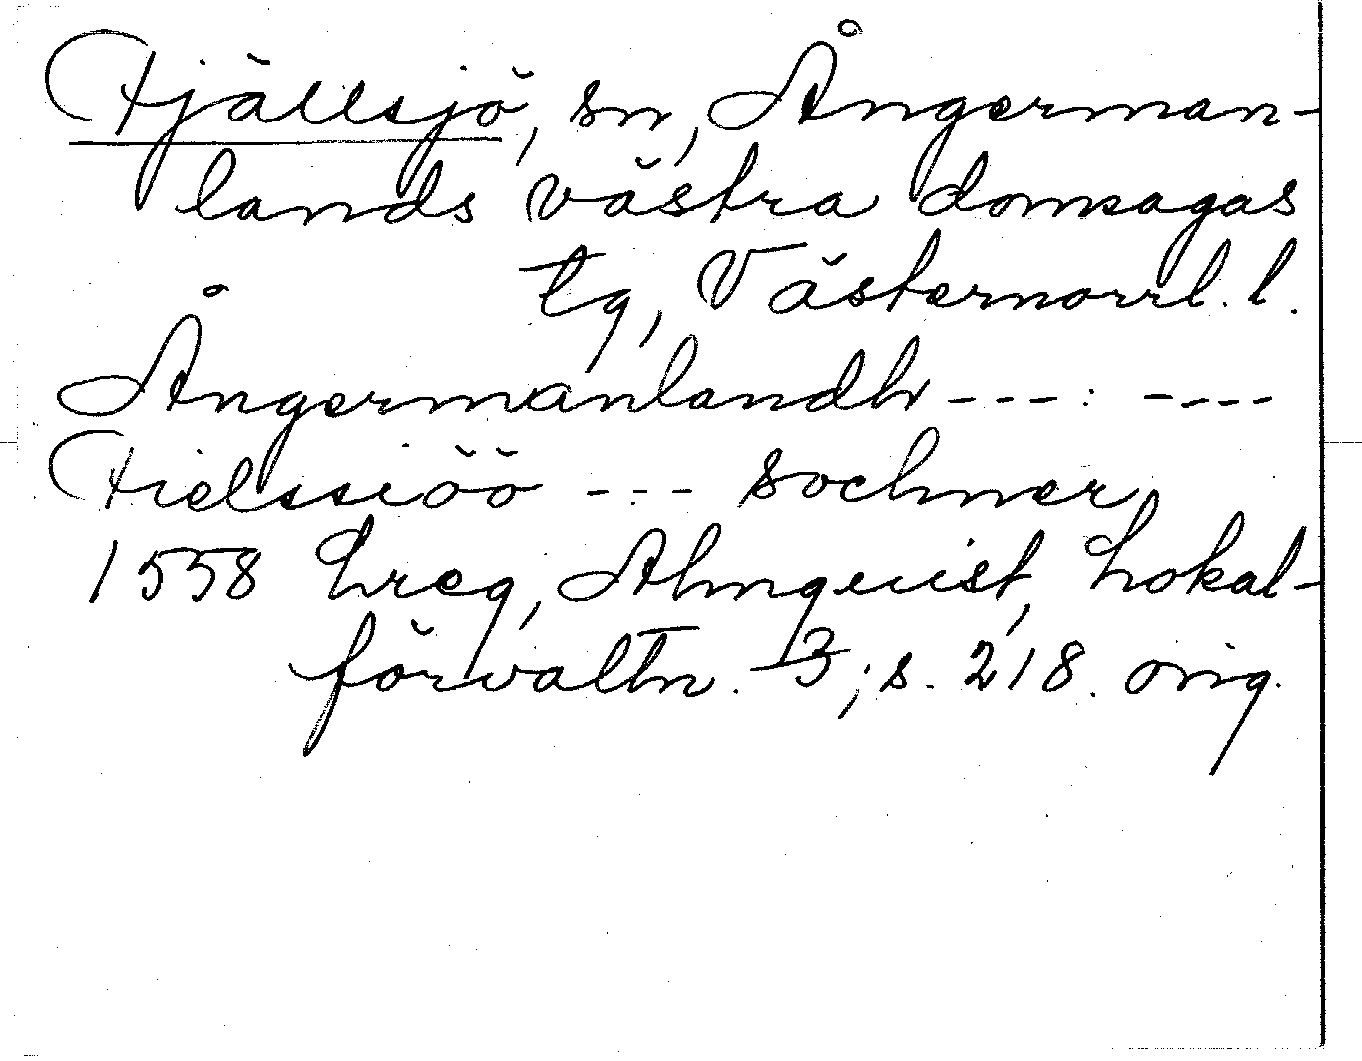 Fjällsjö, sn, Ångerman-
lands västra domsagas
tg, Västernorrl. l.
Ångermanlandh ---: ----
Fielssiöö --- sochner
1558 hreg, Almquist, Lokal-
förvaltn. 3; s. 218. orig.